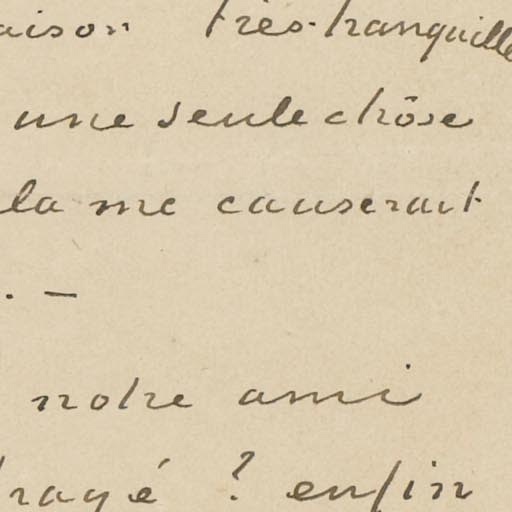 aison très-tranquille
une seule chôse
la me causerait
. —
notre ami
frayé ? enfin